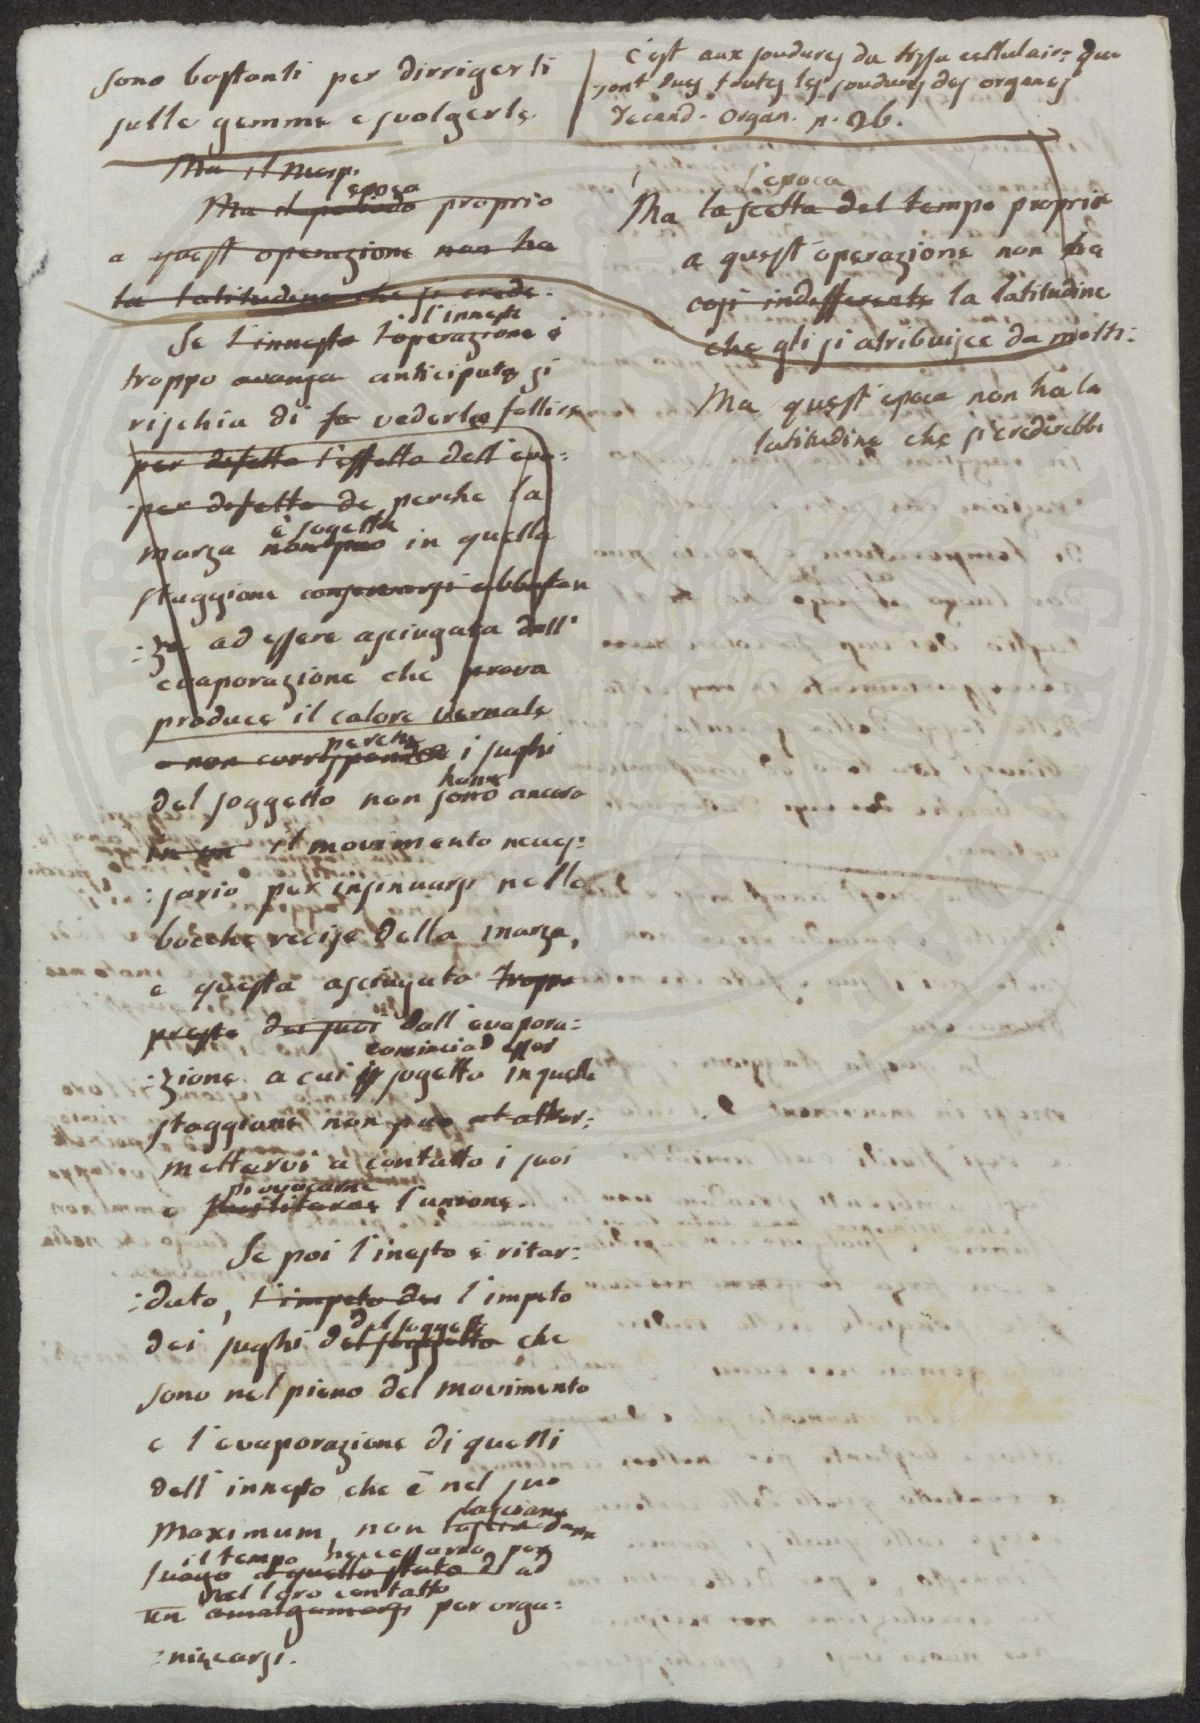 sono bastanti per dirrigerli
sulle gemme e svolgerle
Ma il
Ma il periodo epoca proprio
a quest operazione non ha
la latitudine che si crede.
Se l'innesto l'operazione l'innesto è
troppo avanza anticipato si
rischia di fa vederlo fallire
per difetto l'effetto dell'eva=
per difetto de perche la
marza non può è sogetta in quella
staggione conservarsi abbastan
:za ad essere asciugata dall'
evaporazione che prova
produce il calore vernale
e non corrisponde perche i sughi
del soggetto non sono hanno ancora
in un il movimento neces:
:sario per insinuarsi nelle
bocche recise della marza,
e questa asciugata troppo
presto dei suoi dall'evapora:
:zione a cui comincia ad esser sogetta in quella
staggione non può
mettervi a contatto i suoi
e provocarne l'unione.
Se poi l'inesto è ritar:
:dato, l'impeto dei l'impeto
dei sughi del soggetto del soggetto che
sono nel pieno del movimento
e l'evaporazione di quelli
dell'innesto che è nel suo
maximum, non lasciano
il tempo neccessario per
luogo a quello stato di ad
nel loro contatto
un amalgamarsi per orga:
:nizzarsi.
C'est aux soudures du tissu cellulaire que
sont dues toutes les soudures des organes
Decand. Organ. p. 26.
l'epoca
Ma la scelta del tempo propria
a quest'operazione non ha
cosi indifferente la latitudine
che gli si atribuisce da molti.
Ma quest epoca non ha la
latitudine che si crederebbe